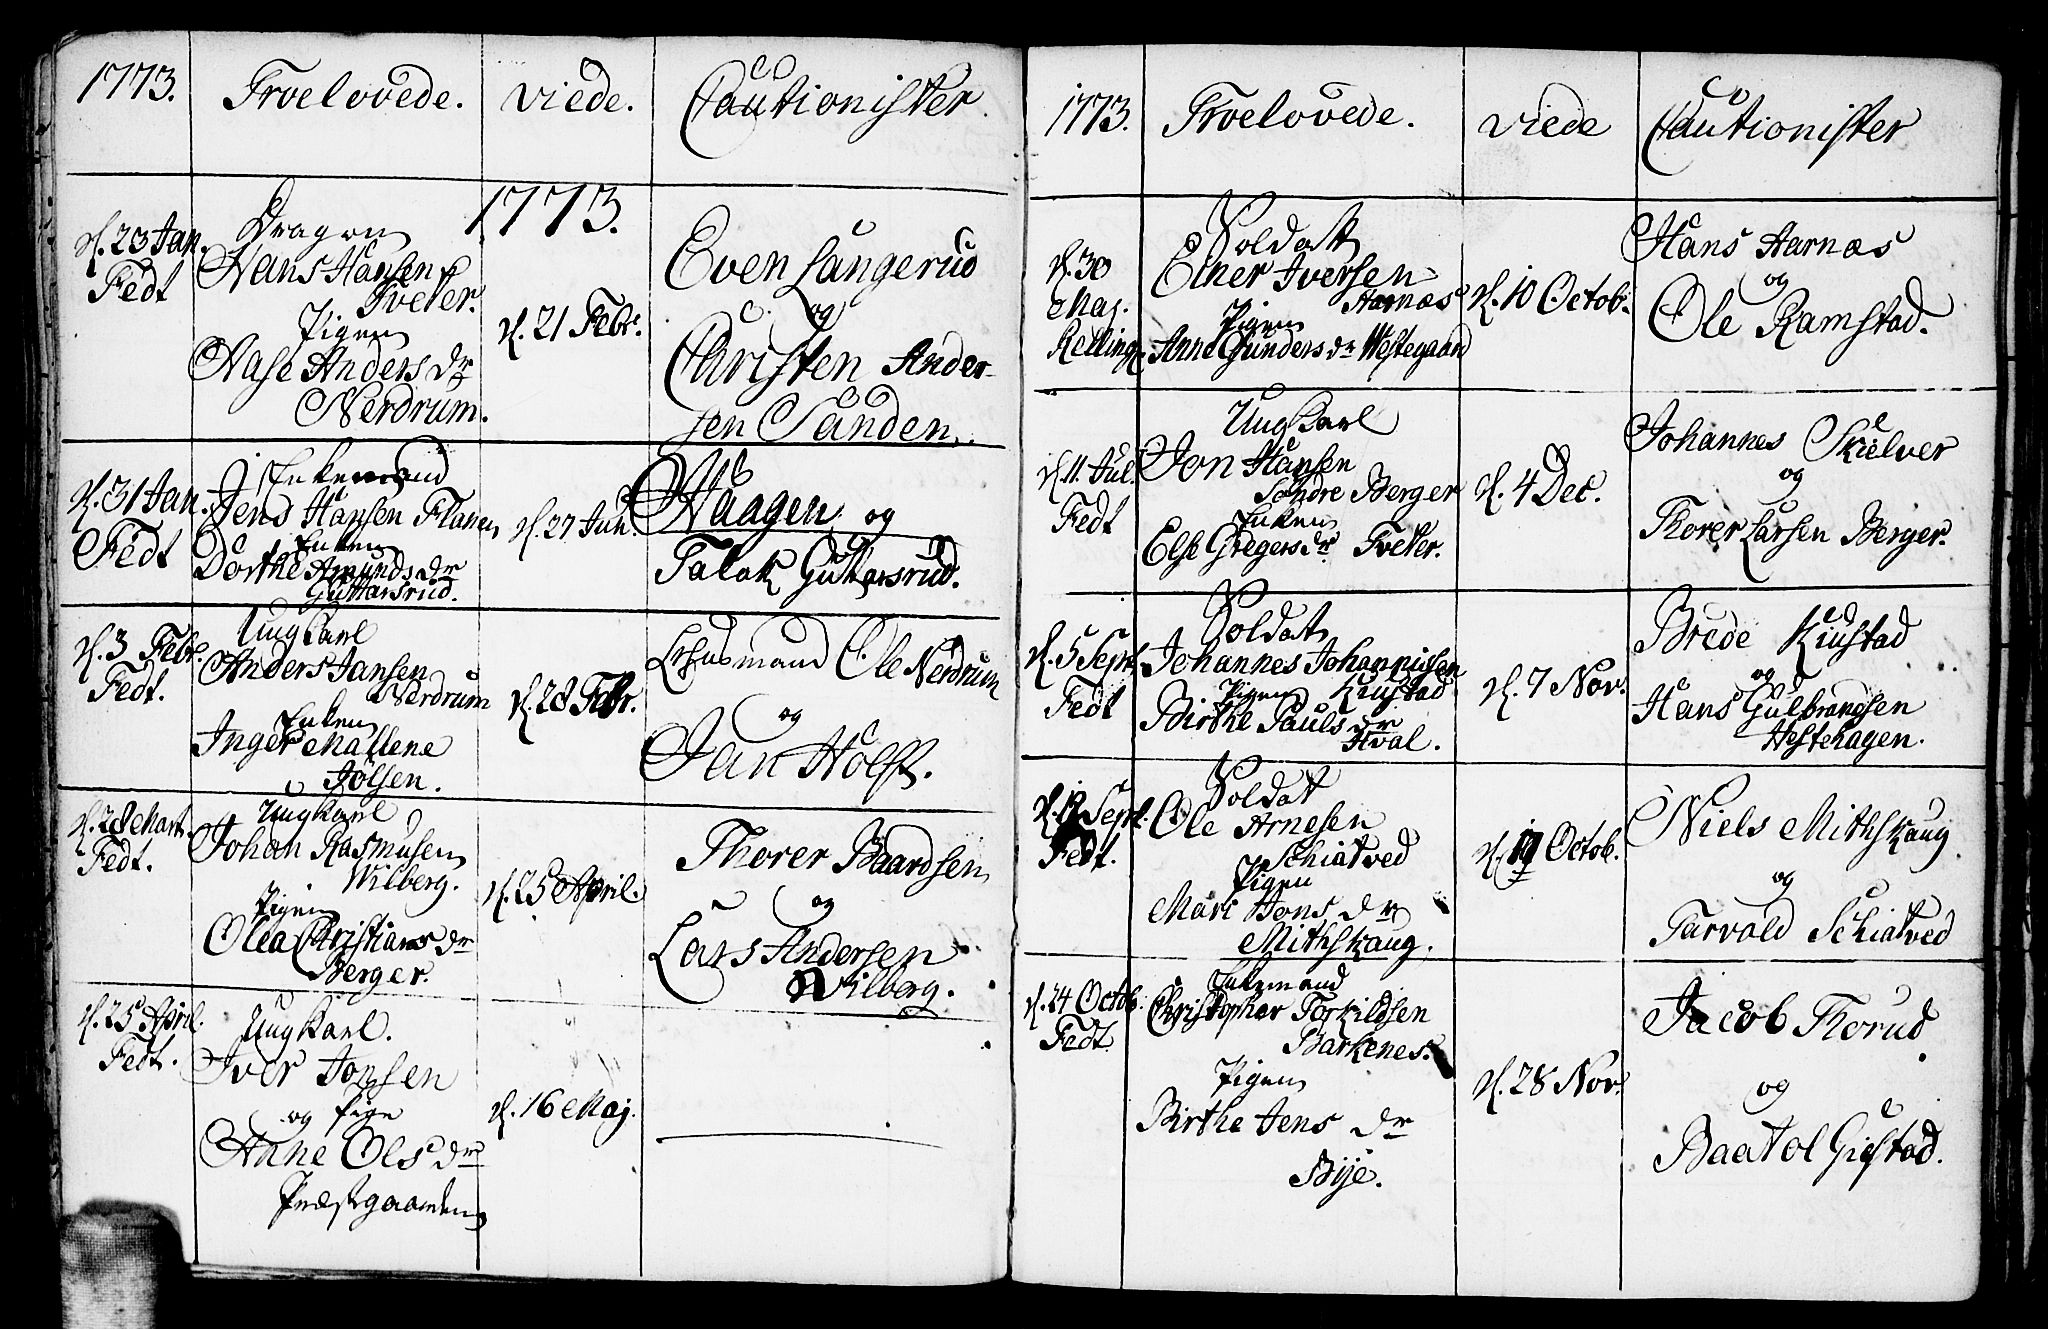 1773. Troelovede. Viede. Cautionister.
1773.
d. 23 Jan.
Fedt
Dragon
Hans Hansen
Tveter.
Pigen
Aase Anders dr
Nerdrum.
d. 21 Febr.
Even Langerud
og
Christen Ander-
sen Sanden.
d. 31 Jan.
Fedt
Enkemand
Jens Hansen Flanen
Enken
Dorthe Amunds dr
Guttersrud.
d. 27 Jun.
Haagen og
Talak Guttersrud.
d. 3 Febr.
Fedt.
Ung Karl
Anders Jansen
Nerdrum
Enken
Inger Mallene
Jølsen.
d. 28 Febr.
Lehnsmand Ole Nerdrum
og
Jan Holst.
d. 28 Mart.
Fedt.
Ung Karl
Johan Rasmusen
Wilberg.
Pigen
Olea Christians dr
Berger.
d. 25 April.
Thorer Baardsen
og
Lars Andersen
Wilberg.
d. 25 April.
Fedt.
Ung Karl.
Iver Jonsen
og Pige
Anne Ols dr
Præstgaarden
d. 16 Maj.
1773. Troelovede. Viede Cautionister
d. 30
Maj.
Relling
Soldat
Einer Iversen
Aarnæs
Pigen
Anne Gunders dr Westegaard
d. 10 Octob.
Hans Aarnæs
og
Ole Ramstad.
d. 11 Jul.
Fedt
Ung Karl
Jon Hansen
Søndre Berger
Enken
Else Gregers dr Tveter.
d. 4 Dec.
Johannes Skielver
og
Thorer Larsen Berger.
d. 5 Sept.
Fedt
Soldat
Johannes Johannissen
Pigen Kiustad
Birthe Pauls dr
Hval.
d. 7 Nov.
Brede Kiustad
og
Hans Gulbrandsen
Hestehagen.
d. 12 Sept.
Fedt.
Soldat
Ole Arnesen
Schiatved
Pigen
Mari Jons dr
Mithskaug.
Octob.
Niels Mithskaug
og
Tarvald Schiatved
d. 24 Octob.
Fedt
Enkemand
Christopher Torkildsen
Barkenes.
Pigen
Birthe Jens dr
Bije.
d. 28 Nov.
Jacob Thorud
og
Baatol Gistad.